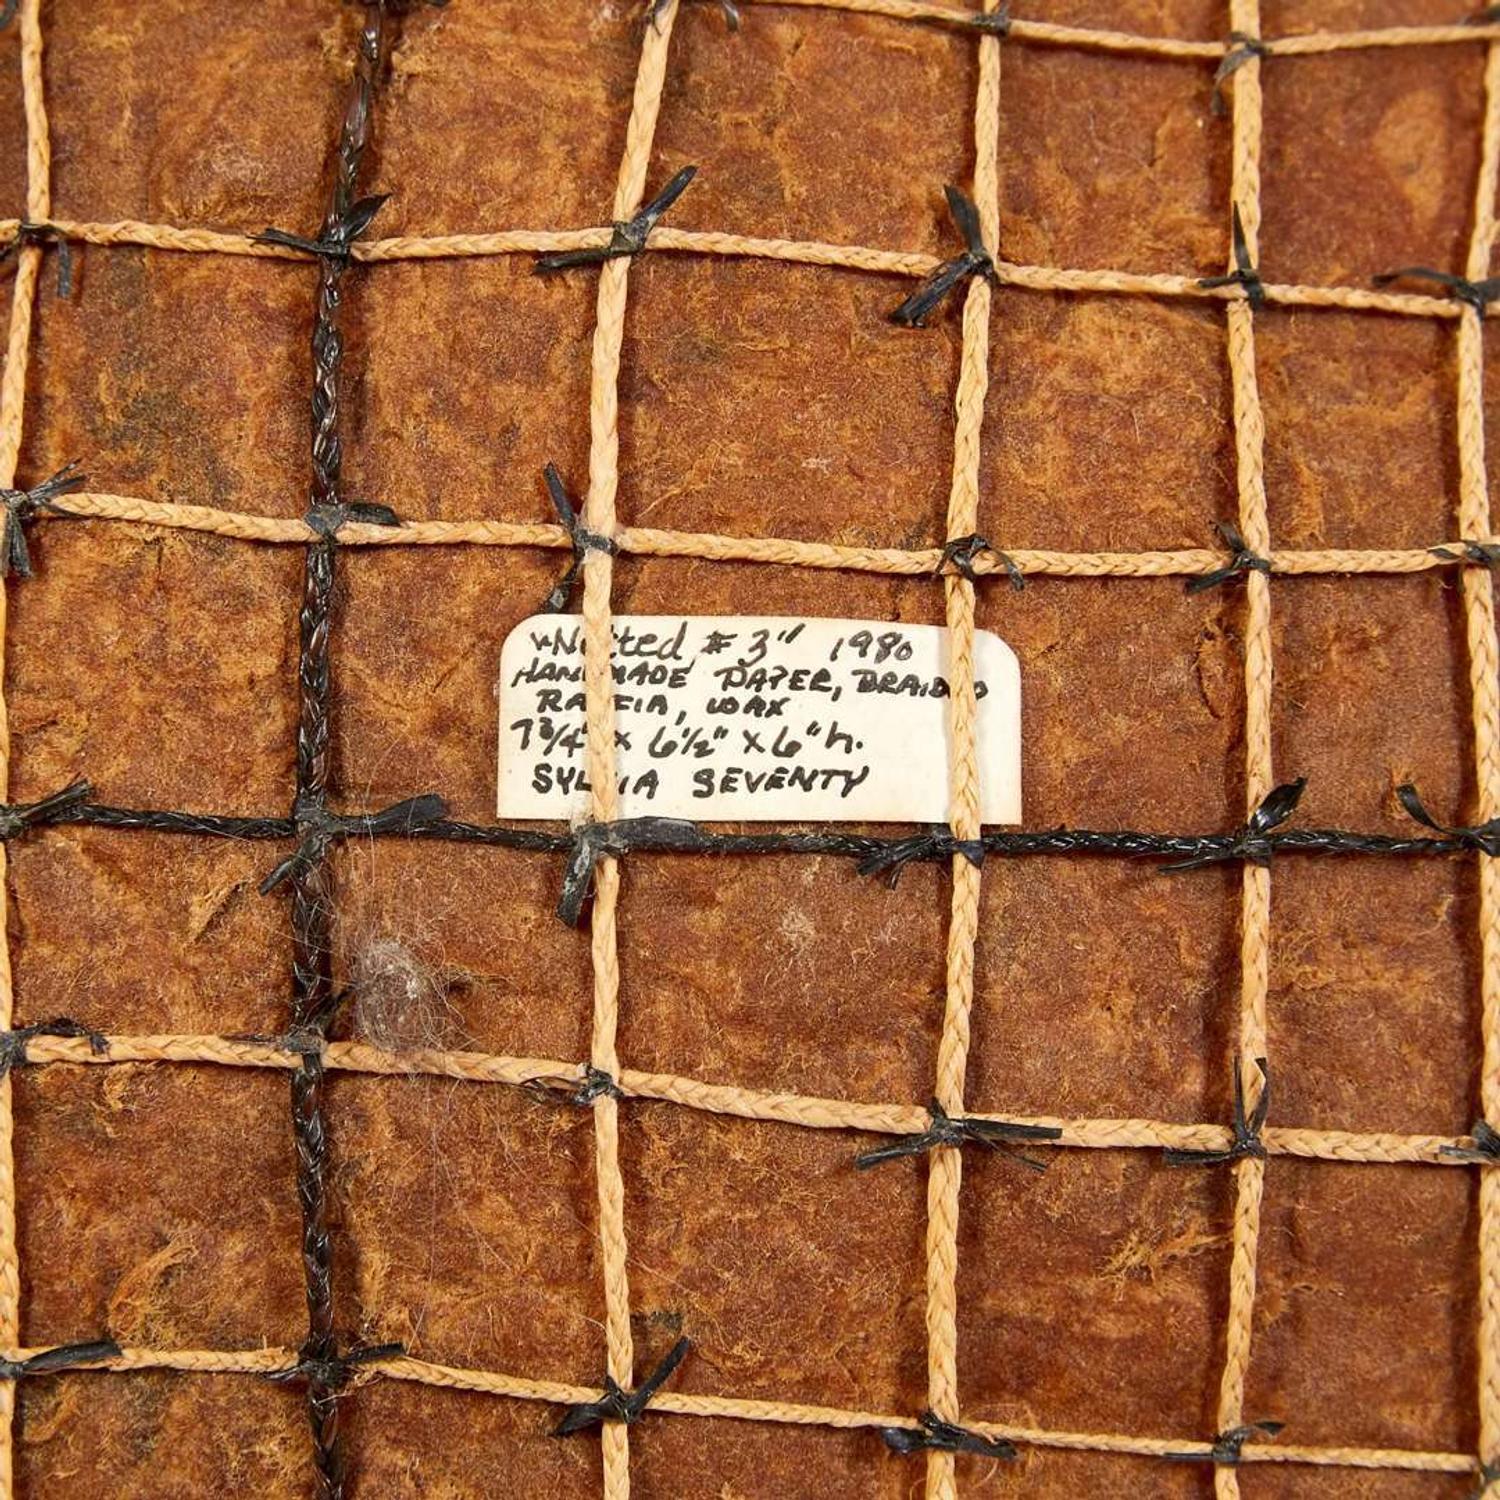 "Netted #3" 1980
HANDMADE PAPER, BRAIDED
RAFFIA, WAX
7 3/4" x 6 1/2" x 6" h.
SYLVIA SEVENTY